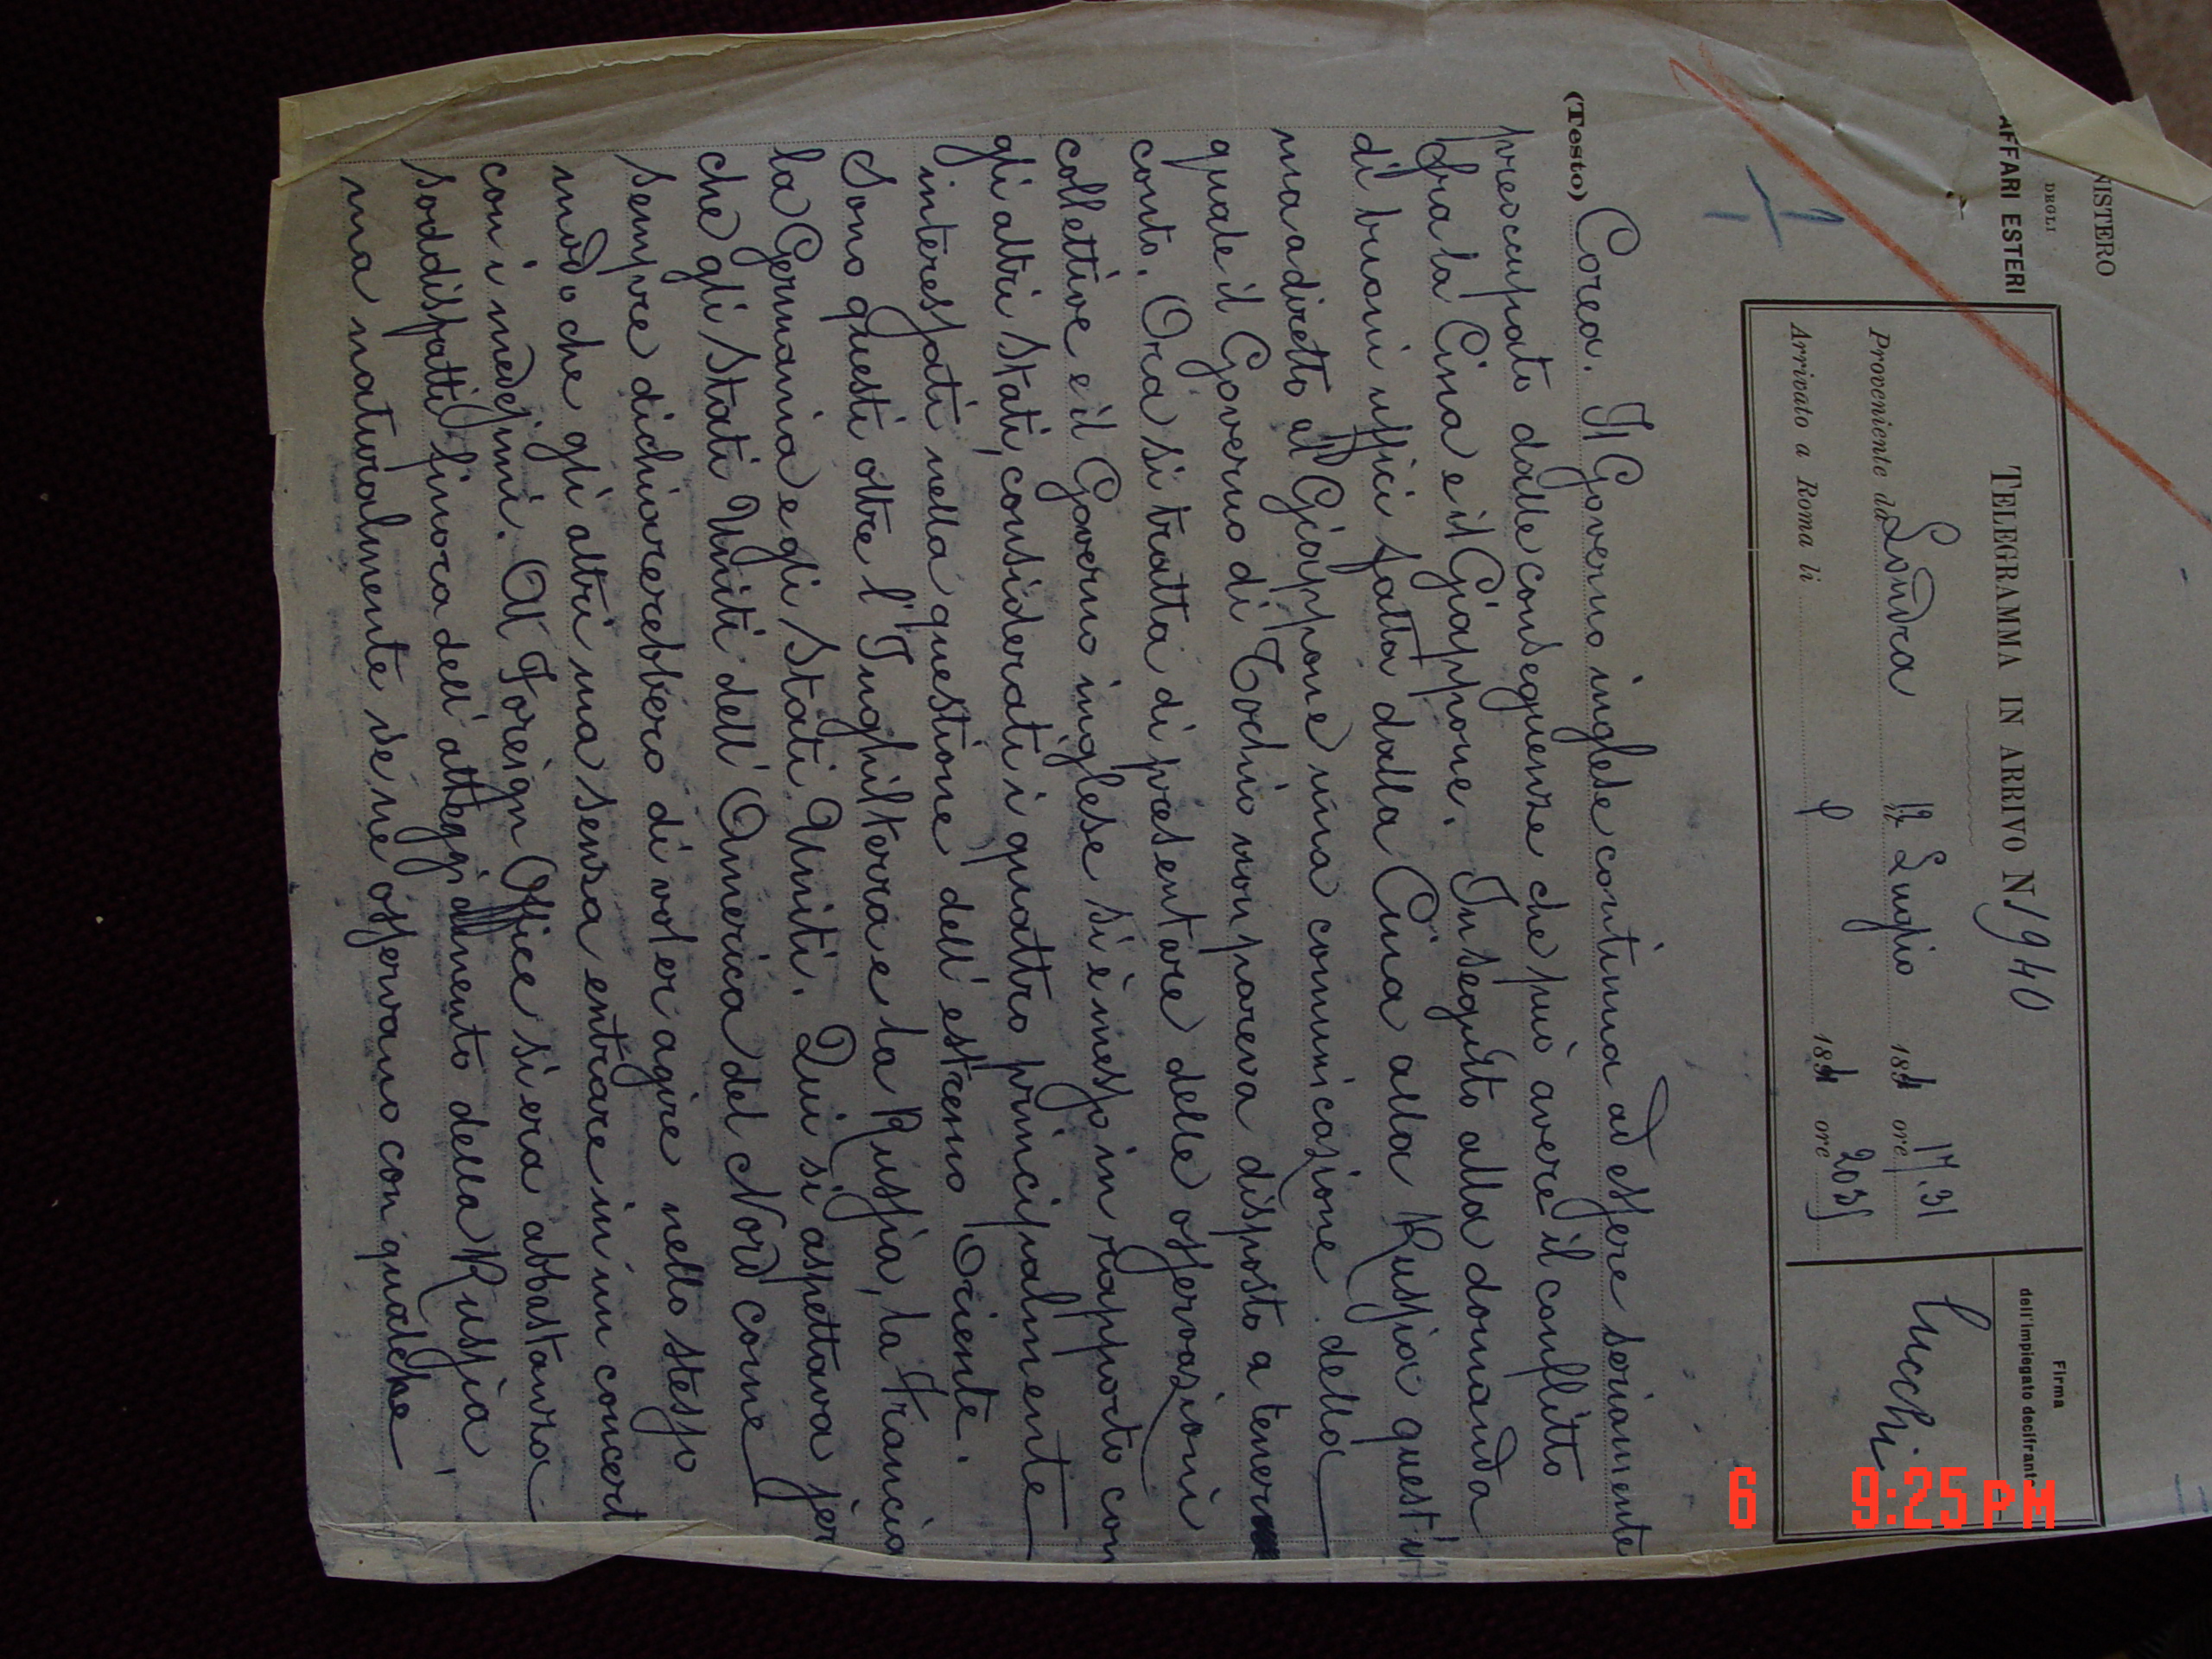 NISTERO
DEGLI
AFFARI ESTERI
TELEGRAMMA IN ARRIVO N. 1940
Proveniente da Londra li 12 Luglio 1894 ore 17.31
Arrivato a Roma li 1894 ore
Firma
dell'impiegato decifrante
Cucchi
(Testo) Corea. Il Governo inglese continua ad essere seriamente
preoccupato dalle conseguenze che può avere il conflitto
fra la Cina e il Giappone. In seguito alla domanda
di buoni uffici fatta dalla Cina alla Russia quest'
ma diretto al Giappone una comunicazione della
quale il Governo di Tochio non pareva disposto a tener
conto. Ora si tratta di presentare delle osservazioni
collettive e il Governo inglese si è messo in rapporto con
gli altri Stati, considerati i quattro principalmente
interessati nella questione dell'estremo Oriente.
Sono questi oltre l'Inghilterra e la Russia, la Francia
la Germania e gli Stati Uniti. Qui si aspettava jer
che gli Stati Uniti dell'America del Nord come
sempre dichiarerebbero di voler agire nello stesso
modo che gli altri ma senza entrare in un concert
con i medesimi. Al Foreign Office si era abbastanza
soddisfatti finora dell'atteggiamento della Russia,
ma naturalmente se ne osservano con qualche
6 9:25PM